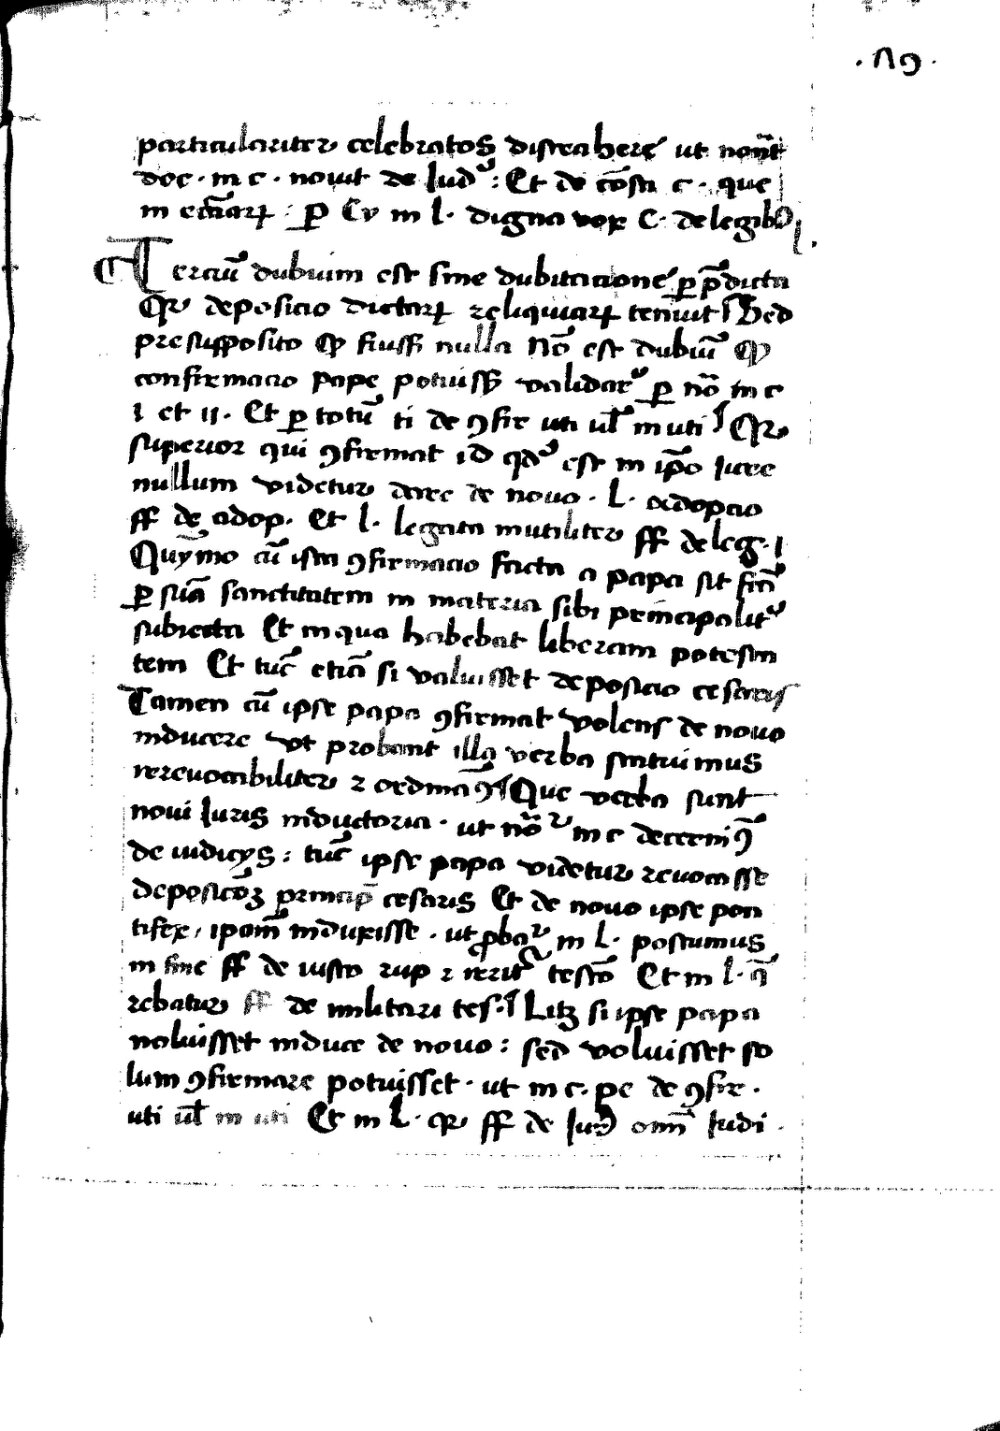 · Λ9 ·
particulariter celebratos distrahere ut nonꝰt
doc · in c · nouit de Iudꝰ : Et de cōsti c · que
in eccͣiarꝝ : ꝑ Cy in l · digna vox C · de legibꝰ
Terciū dubium est sine dubitatione ꝑ p̄dicta
qꝛ deposicio dictarꝝ reliquiarꝝ tenuit Sed
presupposito ꝙ fiuiss̄ nulla Nō est dubiū ꝙ
confirmacio pape potuiss̄ validarꝰ ꝑ nō in c
i et ii · Et ꝑ totū ti de ꝯfir uti ul̄ inuti Qꝛ
superior qui ꝯfirmat id qdꝰ est in ip̄o iure
nullum videtur dare de nouo · l · adopcio
ff de adop · Et l · legata inutiliter ff de leg · i
Quȳmo cū ista ꝯfirmacio facta a papa sit fcā
ꝑ suā sanctitatem in materia sibi principalitꝰ
subiecta Et in qua habebat liberam potesta
tem Et tūc etiā si valuisset deposicio cesaris
Tamen cū ipse papa ꝯfirmat volens de nouo
inducere ut probant illa verba statuimus
irreuocabiliter ⁊ ordinaꝯ̄ Que verba sunt
noui Iuris inductoria · ut nōꝛ in c decerniꝯ̄
de iudicijs : tūc ipse papa videtur reuocasse
deposicōꝫ princip̄ cesaris Et de nouo ipse pon
tifex, ipam̄ induxisse · ut ꝓbaꝛ in l · postumus
in fine ff de iusto rup ⁊ irritꝰ testō Et in l · q̄
rebatur ff de militari tes · Litꝫ si ipse papa
noluisset induce de nouo : sed voluisset so
lum ꝯfirmare potuisset · ut in c · pe de ꝯfir ·
uti ul̄ in uti Et in l · qꝛ ff de Iurd om̄ Iudi ·